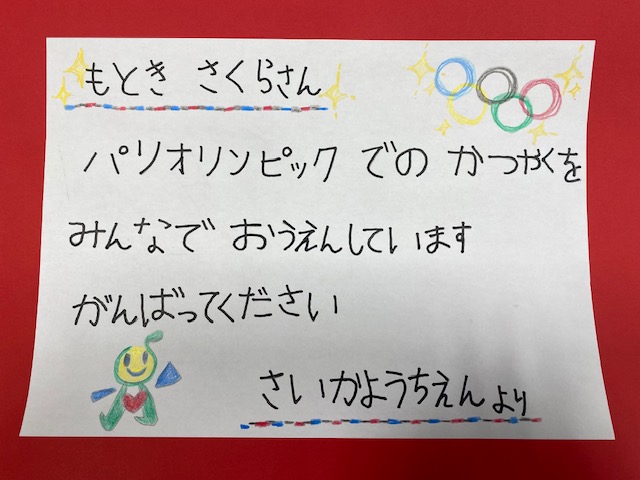 もとき さくらさん
パリオリンピック での かつやくを
みんなで おうえんしています
がんばってください
さいかようちえんより